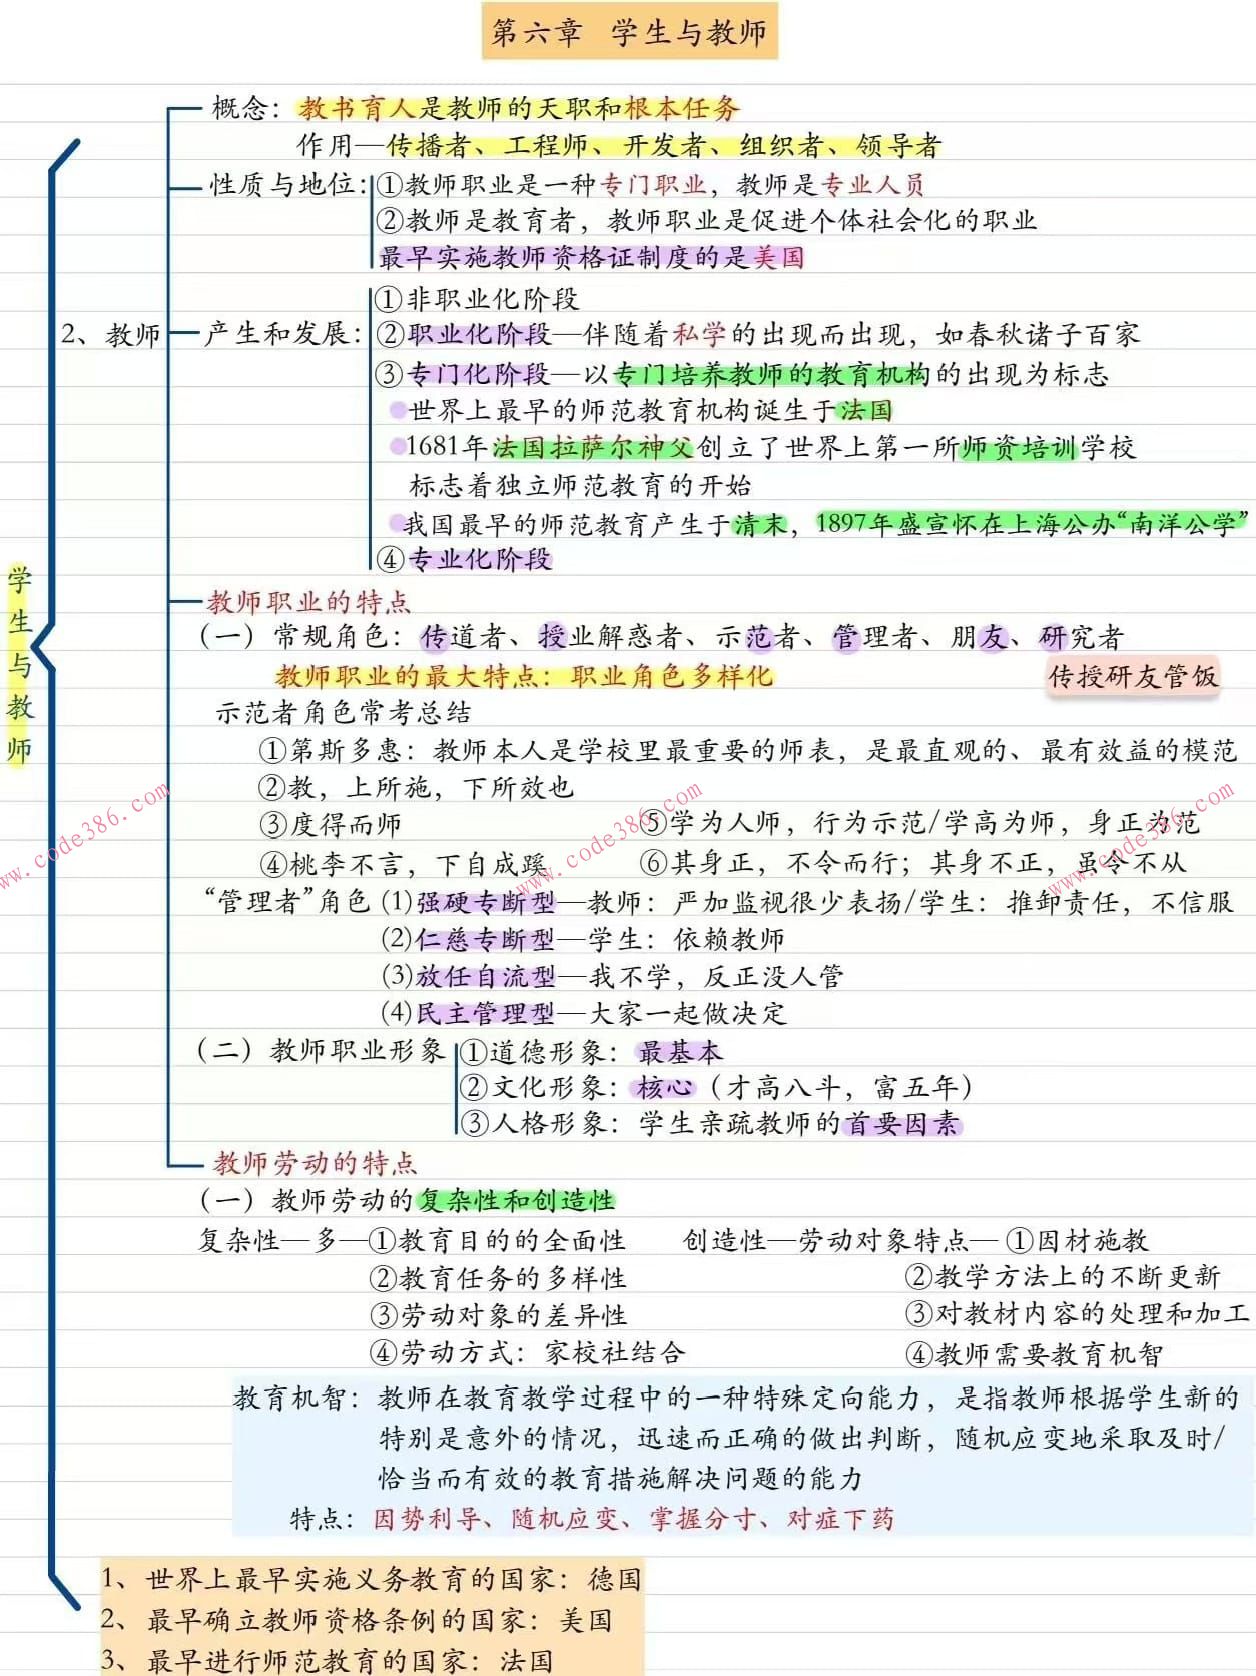 第六章 学生与教师
概念：教书育人是教师的天职和根本任务
作用—传播者、工程师、开发者、组织者、领导者
性质与地位：①教师职业是一种专门职业，教师是专业人员
②教师是教育者，教师职业是促进个体社会化的职业
最早实施教师资格证制度的是美国
①非职业化阶段
2、教师
产生和发展：②职业化阶段—伴随着私学的出现而出现，如春秋诸子百家
③专门化阶段—以专门培养教师的教育机构的出现为标志
世界上最早的师范教育机构诞生于法国
1681年法国拉萨尔神父创立了世界上第一所师资培训学校
标志着独立师范教育的开始
我国最早的师范教育产生于清末，1897年盛宣怀在上海公办“南洋公学”
④专业化阶段
学生与教师
教师职业的特点
（一）常规角色：传道者、授业解惑者、示范者、管理者、朋友、研究者
教师职业的最大特点：职业角色多样化 传授研友管饭
示范者角色常考总结
①第斯多惠：教师本人是学校里最重要的师表，是最直观的、最有效益的模范
②教，上所施，下所效也
③度得而师 ⑤学为人师，行为示范/学高为师，身正为范
④桃李不言，下自成蹊 ⑥其身正，不令而行；其身不正，虽令不从
www.code386.com
www.code386.com
www.code386.com
“管理者”角色 (1)强硬专断型—教师：严加监视很少表扬/学生：推卸责任，不信服
(2)仁慈专断型—学生：依赖教师
(3)放任自流型—我不学，反正没人管
(4)民主管理型—大家一起做决定
（二）教师职业形象 ①道德形象：最基本
②文化形象：核心（才高八斗，富五年）
③人格形象：学生亲疏教师的首要因素
教师劳动的特点
（一）教师劳动的复杂性和创造性
复杂性—多—①教育目的的全面性 创造性—劳动对象特点—①因材施教
②教育任务的多样性 ②教学方法上的不断更新
③劳动对象的差异性 ③对教材内容的处理和加工
④劳动方式：家校社结合 ④教师需要教育机智
教育机智：教师在教育教学过程中的一种特殊定向能力，是指教师根据学生新的
特别是意外的情况，迅速而正确的做出判断，随机应变地采取及时/
恰当而有效的教育措施解决问题的能力
特点：因势利导、随机应变、掌握分寸、对症下药
1、世界上最早实施义务教育的国家：德国
2、最早确立教师资格条例的国家：美国
3、最早进行师范教育的国家：法国